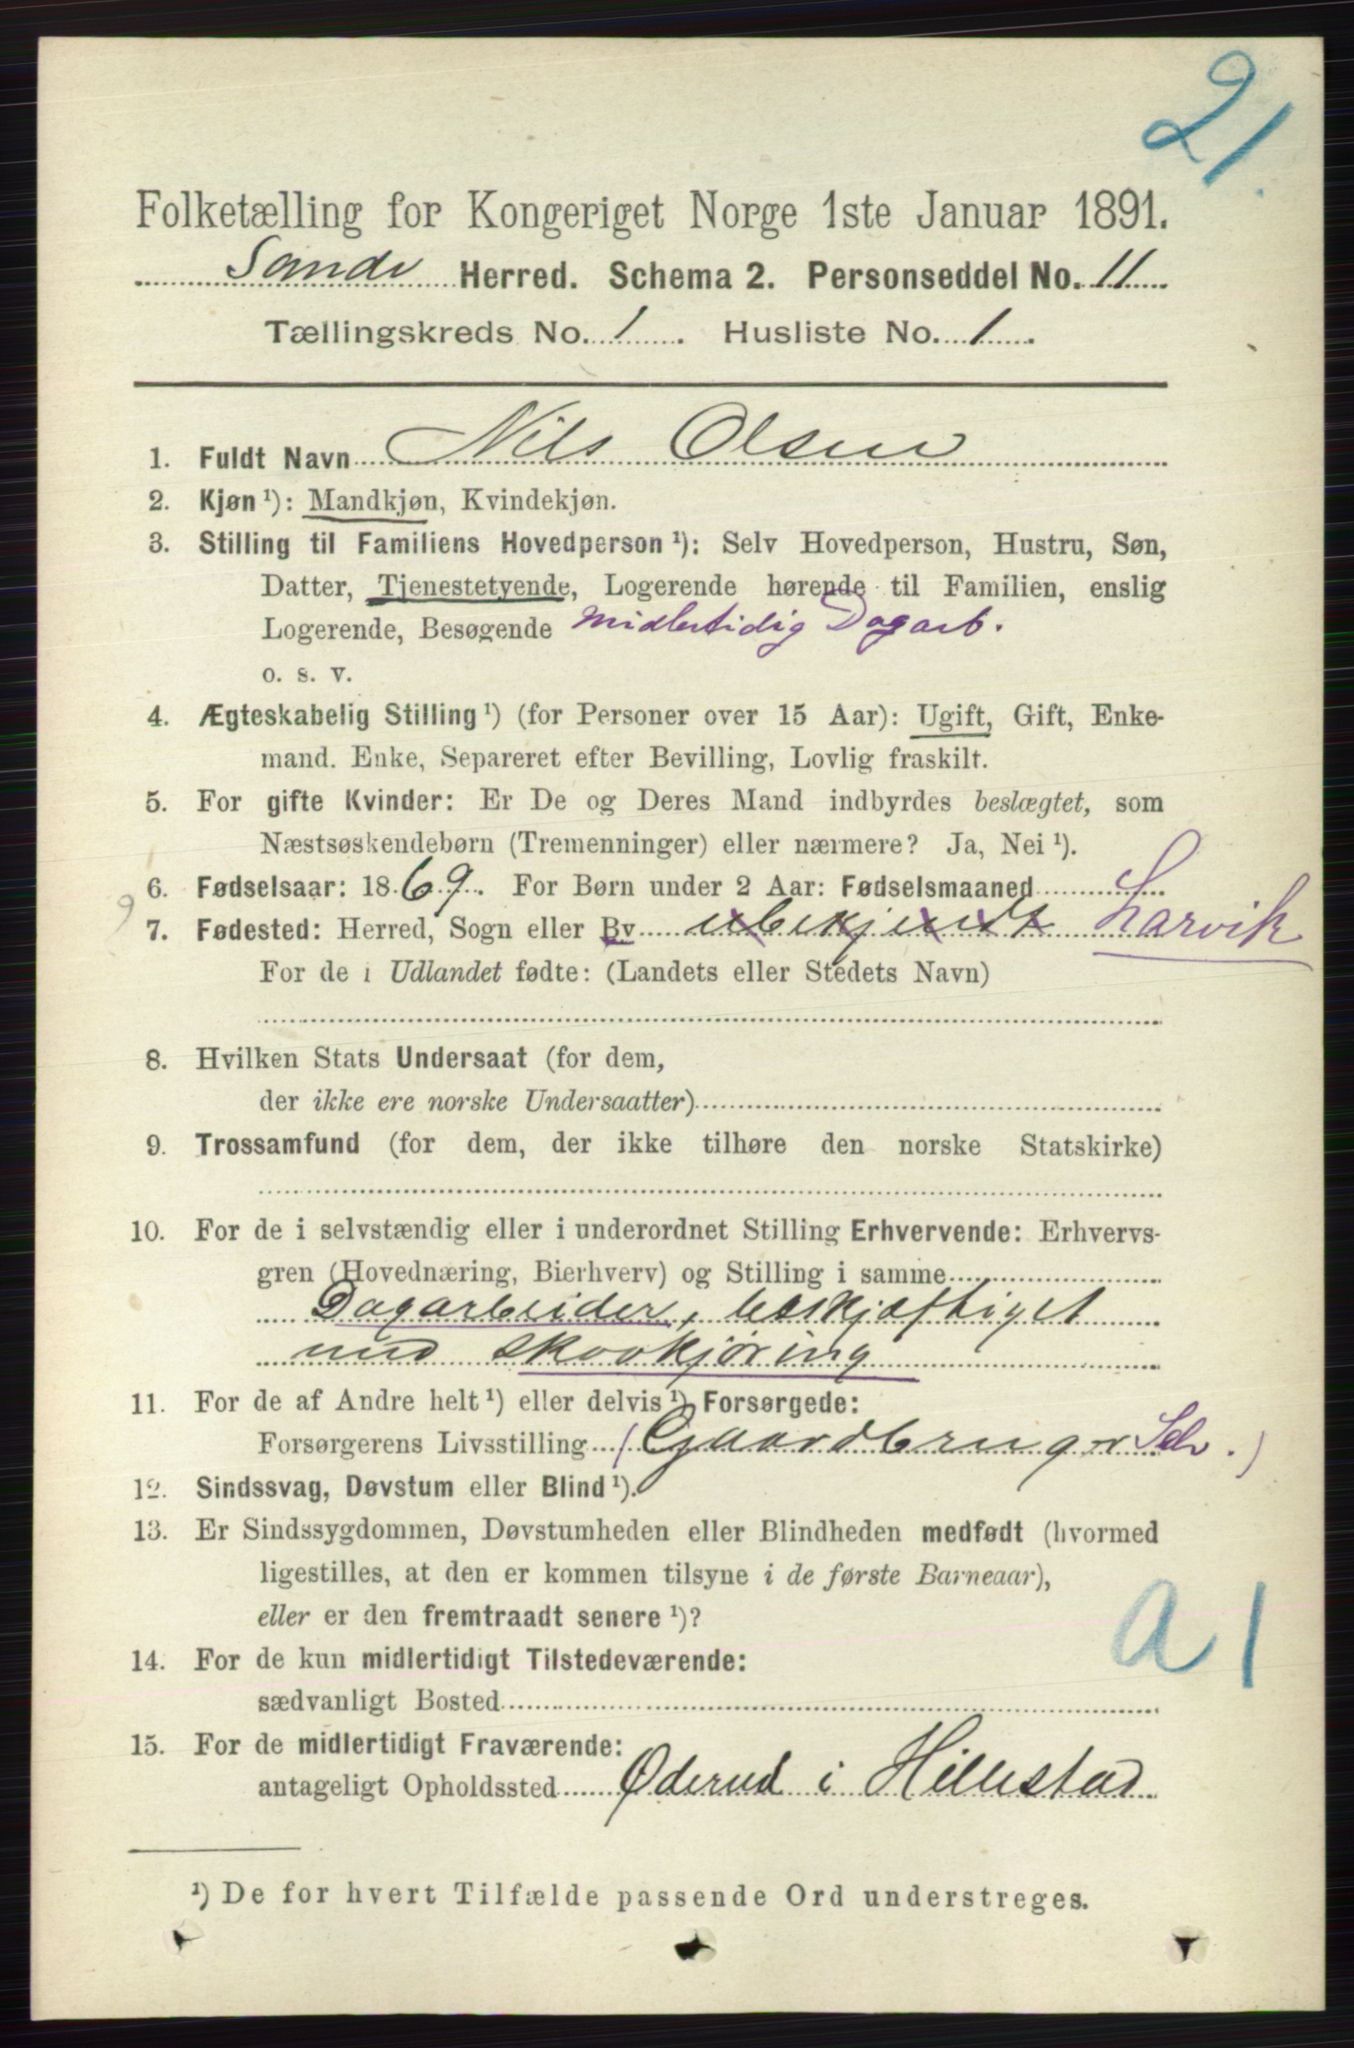 21.
Folketælling for Kongeriget Norge 1ste Januar 1891.
Sande Herred. Schema 2. Personseddel No. 11
Tællingskreds No. 1. Husliste No. 1.
1. Fuldt Navn Nils Olsen
2. Kjøn ¹): Mandkjøn, Kvindekjøn.
3. Stilling til Familiens Hovedperson ¹): Selv Hovedperson, Hustru, Søn,
Datter, Tjenestetyende, Logerende hørende til Familien, enslig
Logerende, Besøgende midlertidig Dagarb.
o. s. v.
4. Ægteskabelig Stilling ¹) (for Personer over 15 Aar): Ugift, Gift, Enke-
mand. Enke, Separeret efter Bevilling, Lovlig fraskilt.
5. For gifte Kvinder: Er De og Deres Mand indbyrdes beslægtet, som
Næstsøskendebørn (Tremenninger) eller nærmere? Ja, Nei ¹).
6. Fødselsaar: 1869. For Børn under 2 Aar: Fødselsmaaned
7. Fødested: Herred, Sogn eller By ubekjendt Larvik
For de i Udlandet fødte: (Landets eller Stedets Navn)
8. Hvilken Stats Undersaat (for dem,
der ikke ere norske Undersaatter)
9. Trossamfund (for dem, der ikke tilhøre den norske Statskirke)
10. For de i selvstændig eller i underordnet Stilling Erhvervende: Erhvervs-
gren (Hovednæring, Bierhverv) og Stilling i samme
Dagarbeider, beskjæftiget
med skovkjøring
11. For de af Andre helt ¹) eller delvis ¹) Forsørgede:
Forsørgerens Livsstilling (Gaardbruger Selv.)
12. Sindssvag, Døvstum eller Blind ¹).
13. Er Sindssygdommen, Døvstumheden eller Blindheden medfødt (hvormed
ligestilles, at den er kommen tilsyne i de første Barneaar),
eller er den fremtraadt senere ¹)?
a 1
14. For de kun midlertidigt Tilstedeværende:
sædvanligt Bosted
15. For de midlertidigt Fraværende:
antageligt Opholdssted Øderud i Hillestad
¹) De for hvert Tilfælde passende Ord understreges.